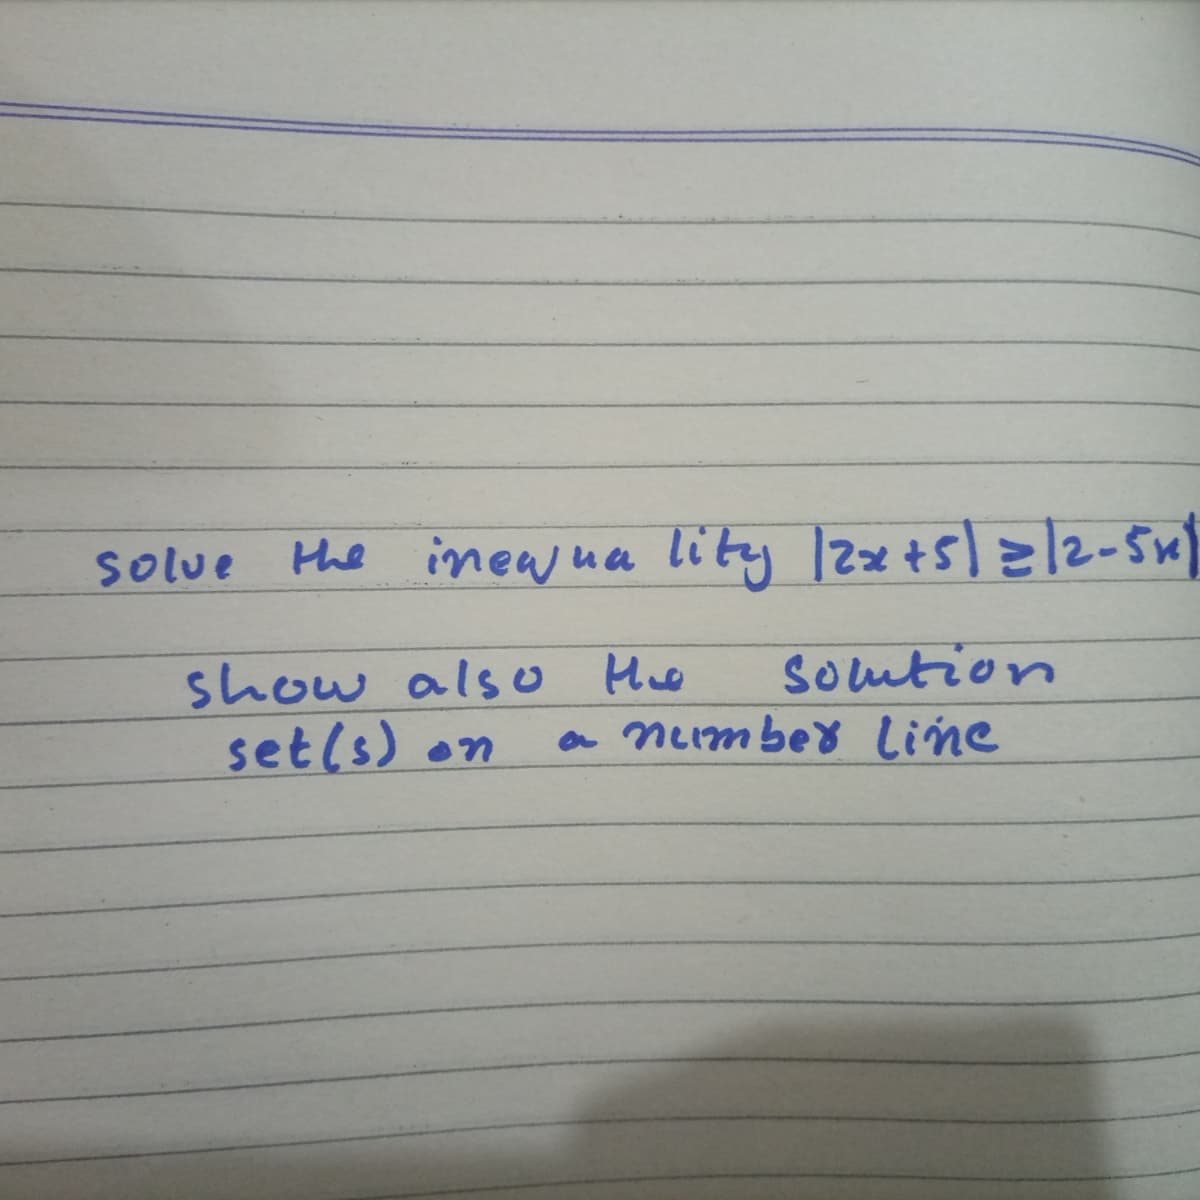 solve the inequality |2x+5| ≥ |2-5x|
show also the solution
set(s) on a number line